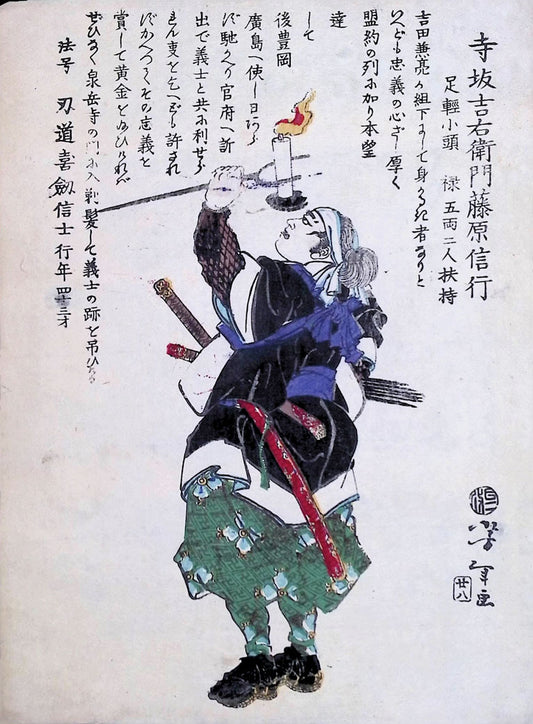 寺坂吉右衛門藤原信行
足輕小頭 禄五両二人扶持
吉田兼亮が組下にて身かるき者なりと
いへども忠義の心ざし厚く
盟約の列に加り本望
達
して
後豊岡
廣島へ使し日あらず
馳かへり官府へ訴
出て義士と共に刑せら
れん事を乞へども許され
ずかへつてその忠義を
賞して黄金を給ひければ
ぜひなく泉岳寺の門に入 剃髪して義士の跡を吊ひける
法号 刃道喜劔信士 行年四十三才
芳年画
廿八